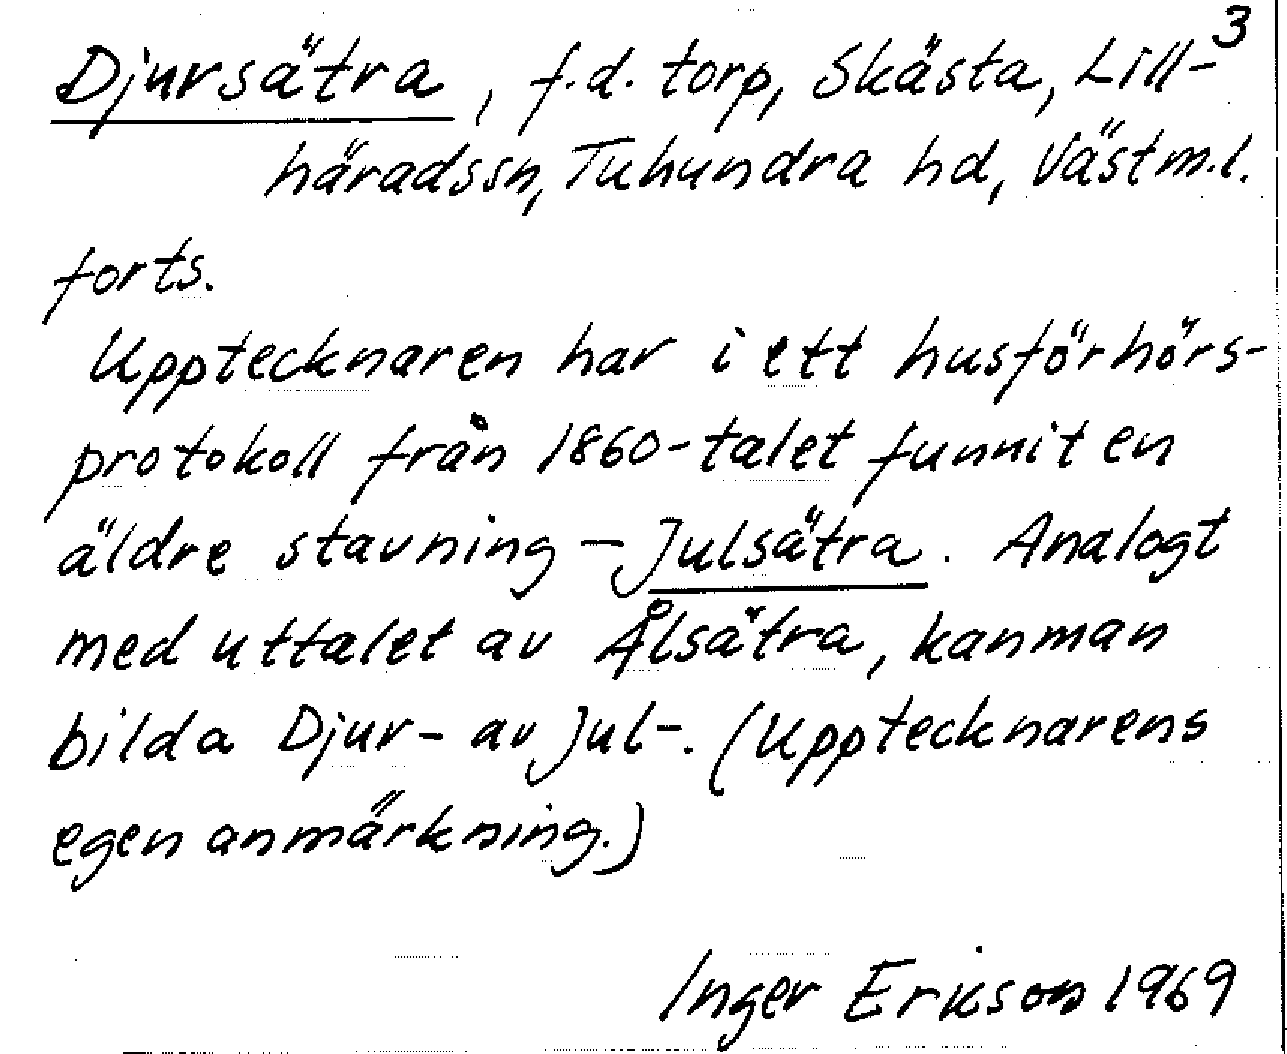 3
Djursätra, f.d. torp, Skästa, Lill-
häradssn, Tuhundra hd, Västm.l.
forts.
Upptecknaren har i ett husförhörs-
protokoll från 1860-talet funnit en
äldre stavning – Julsätra. Analogt
med uttalet av Ålsätra, kan man
bilda Djur- av Jul-. (Upptecknarens
egen anmärkning.)
Inger Erikson 1969